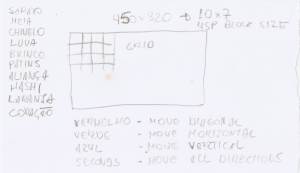 SAPATO
MEIA
CHINELO
LUVA
BRINCO
PATINS
ALIANÇA
HASHI
LARANJA
CORAÇÃO
450x320 → 10x7
45P BLOCK SIZE
GRID
VERMELHO - MOVE DIAGONAL
VERDE - MOVE HORIZONTAL
AZUL - MOVE VERTICAL
SECONDS - MOVE ALL DIRECTIONS